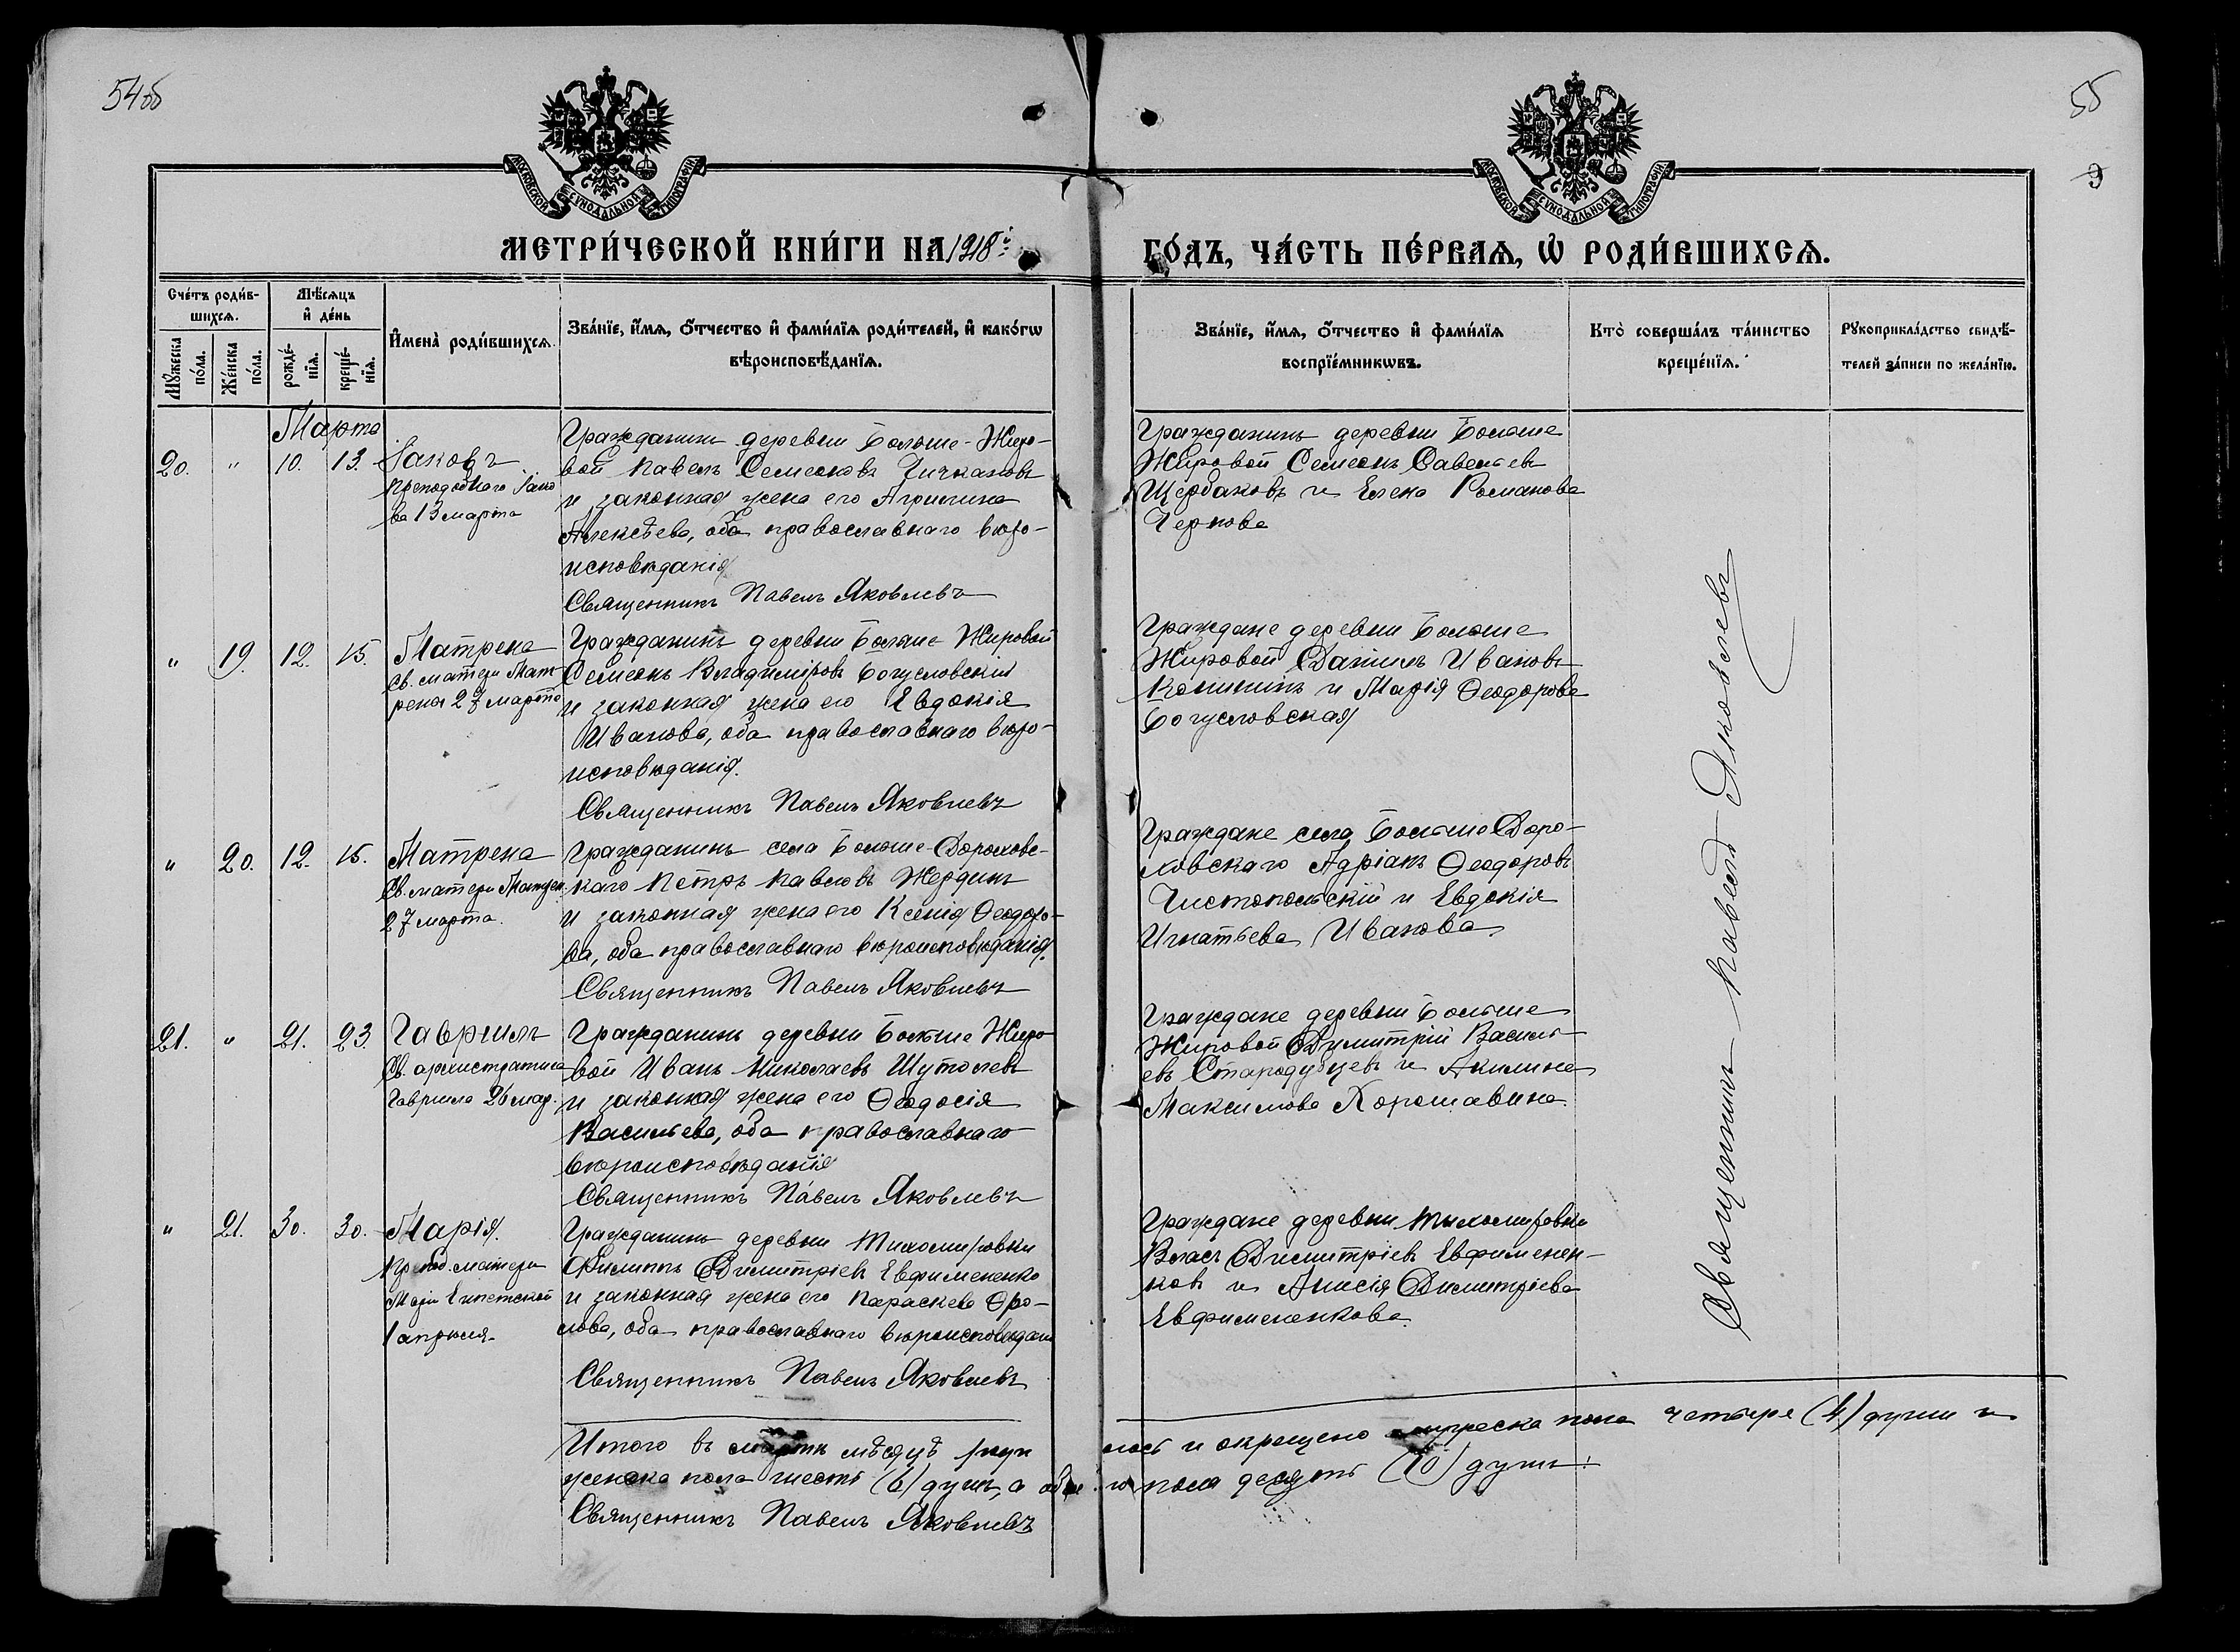 54об
55
9
МОСКОВСКОЙ СѴНОДАЛЬНОЙ ТИПОГРАФІИ
МОСКОВСКОЙ СѴНОДАЛЬНОЙ ТИПОГРАФІИ
МЕТРИ́ЧЕСКОЙ КНИ́ГИ НА 1918й
ГО́ДЪ, ЧА́СТЬ ПЕ́РВАѦ, Ѡ҆ РОДИ́ВШИХСѦ.
Сче́тъ роди́в-
шихсѧ.
Му́жеска
по́ла.
Же́нска
по́ла.
Мѣ́сѧцъ
и҆ де́нь
рожде́-
нїѧ.
креще́-
нїѧ.
И҆мена̀ роди́вшихсѧ.
Зва́нїе, и҆́мѧ, ѻ҆́тчество и҆ фами́лїѧ роди́телей, и҆ како́гѡ
вѣроисповѣ́данїѧ.
Зва́нїе, и҆́мѧ, ѻ҆́тчество и҆ фами́лїѧ
воспрїе́мникѡвъ.
Кто̀ соверша́лъ та́инство
креще́нїѧ.
Рꙋкоприкла́дство свидѣ́-
телей за́писи по жела́нїю.
Марта
20. " 10. 13. Іаковъ
преподобнаго Іако
ва 13 марта
Гражданинъ деревни Больше-Жиро-
вой Павелъ Семеоновъ Чичкановъ
и законная жена его Агрипина
Алексѣева, оба православнаго вѣро-
исповѣданія
Священникъ Павелъ Яковлевъ
Гражданинъ деревни Больше
Жировой Семеонъ Савельевъ
Щербаковъ и Елена Романова
Чернова
" 19. 12. 15. Матрена
Св. матери Мат
рены 27 марта
Гражданинъ деревни Больше Жировой
Семеонъ Владиміровъ Богусловскій
и законная жена его Евдокія
Иванова, оба православнаго вѣро-
исповѣданія.
Священникъ Павелъ Яковлевъ
Граждане деревни Больше
Жировой Даніилъ Ивановъ
Конининъ и Марія Ѳеодорова
Богусловская
" 20. 12. 15. Матрена
Св. матери Матрен
27 марта.
Гражданинъ села Больше-Дорохове-
каго Петръ Павловъ Жердинъ
и законная жена его Ксенія Ѳеодоро-
ва, оба православнаго вѣроисповѣданія.
Священникъ Павелъ Яковлевъ
Граждане села Больше Доро-
ховскаго Адріанъ Ѳеодоровъ
Чистопольскій и Евдокія
Игнатьева Иванова
21. " 21. 23. Гавріилъ
Св. архистратига
Гавріила 26 мар.
Гражданинъ деревни Больше Жиро
вой Иванъ Николаевъ Шутолевъ
и законная жена его Ѳеодосія
Васильева, оба православнаго
вѣроисповѣданія
Священникъ Павелъ Яковлевъ
Граждане деревни Больше
Жировой Димитрій Василь-
евъ Стародубцевъ и Акилина
Максимова Хорошавина.
" 21. 30. 30. Марія.
Препод. матери
Маріи Египетской
1 апрѣля.
Гражданинъ деревни Тихомировки
Филиппъ Димитріевъ Евфимененко
и законная жена его Параскева Фро-
лова, оба православнаго вѣроисповѣдан
Священникъ Павелъ Яковлевъ
Граждане деревни Тихомировки
Власъ Димитріевъ Евфименен-
ковъ и Анисія Димитріева
Евфимененкова.
Священникъ Павелъ Яковлевъ
Итого въ мартѣ мѣсяцѣ роди лось и окрещено мужеска пола четыре (4) души и
женска пола шесть (6) душъ, а обоего пола десять (10) душъ.
Священникъ Павелъ Яковлевъ